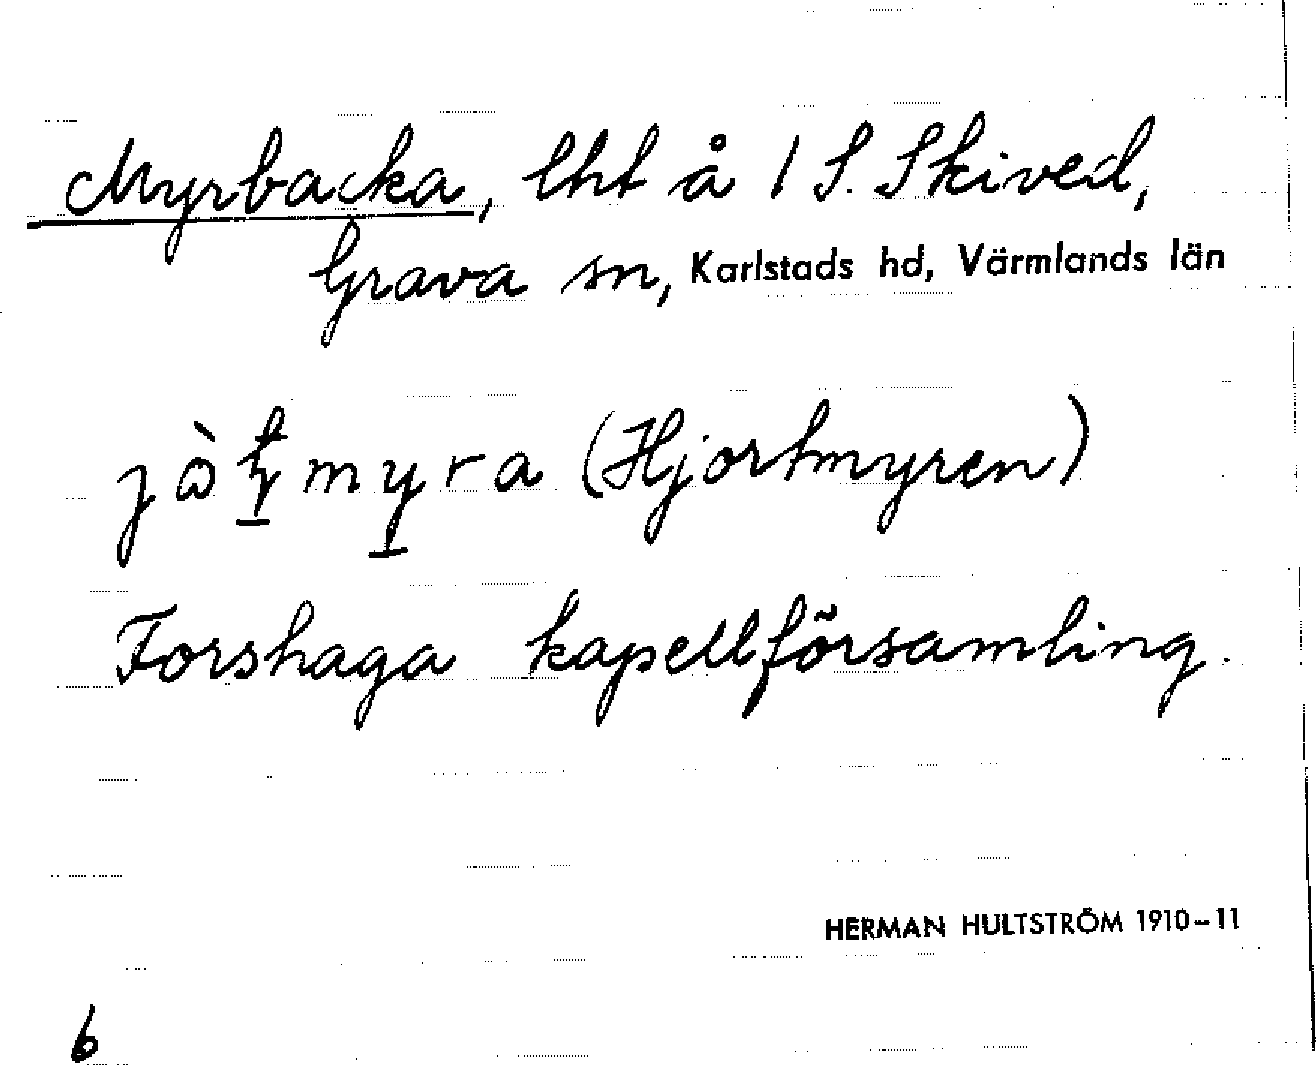 Myrbacka, lht å 1 S. Skived,
Grava sn, Karlstads hd, Värmlands län
(Hjortmyren)
Forshaga kapellförsamling.
HERMAN HULTSTRÖM 1910-11
6